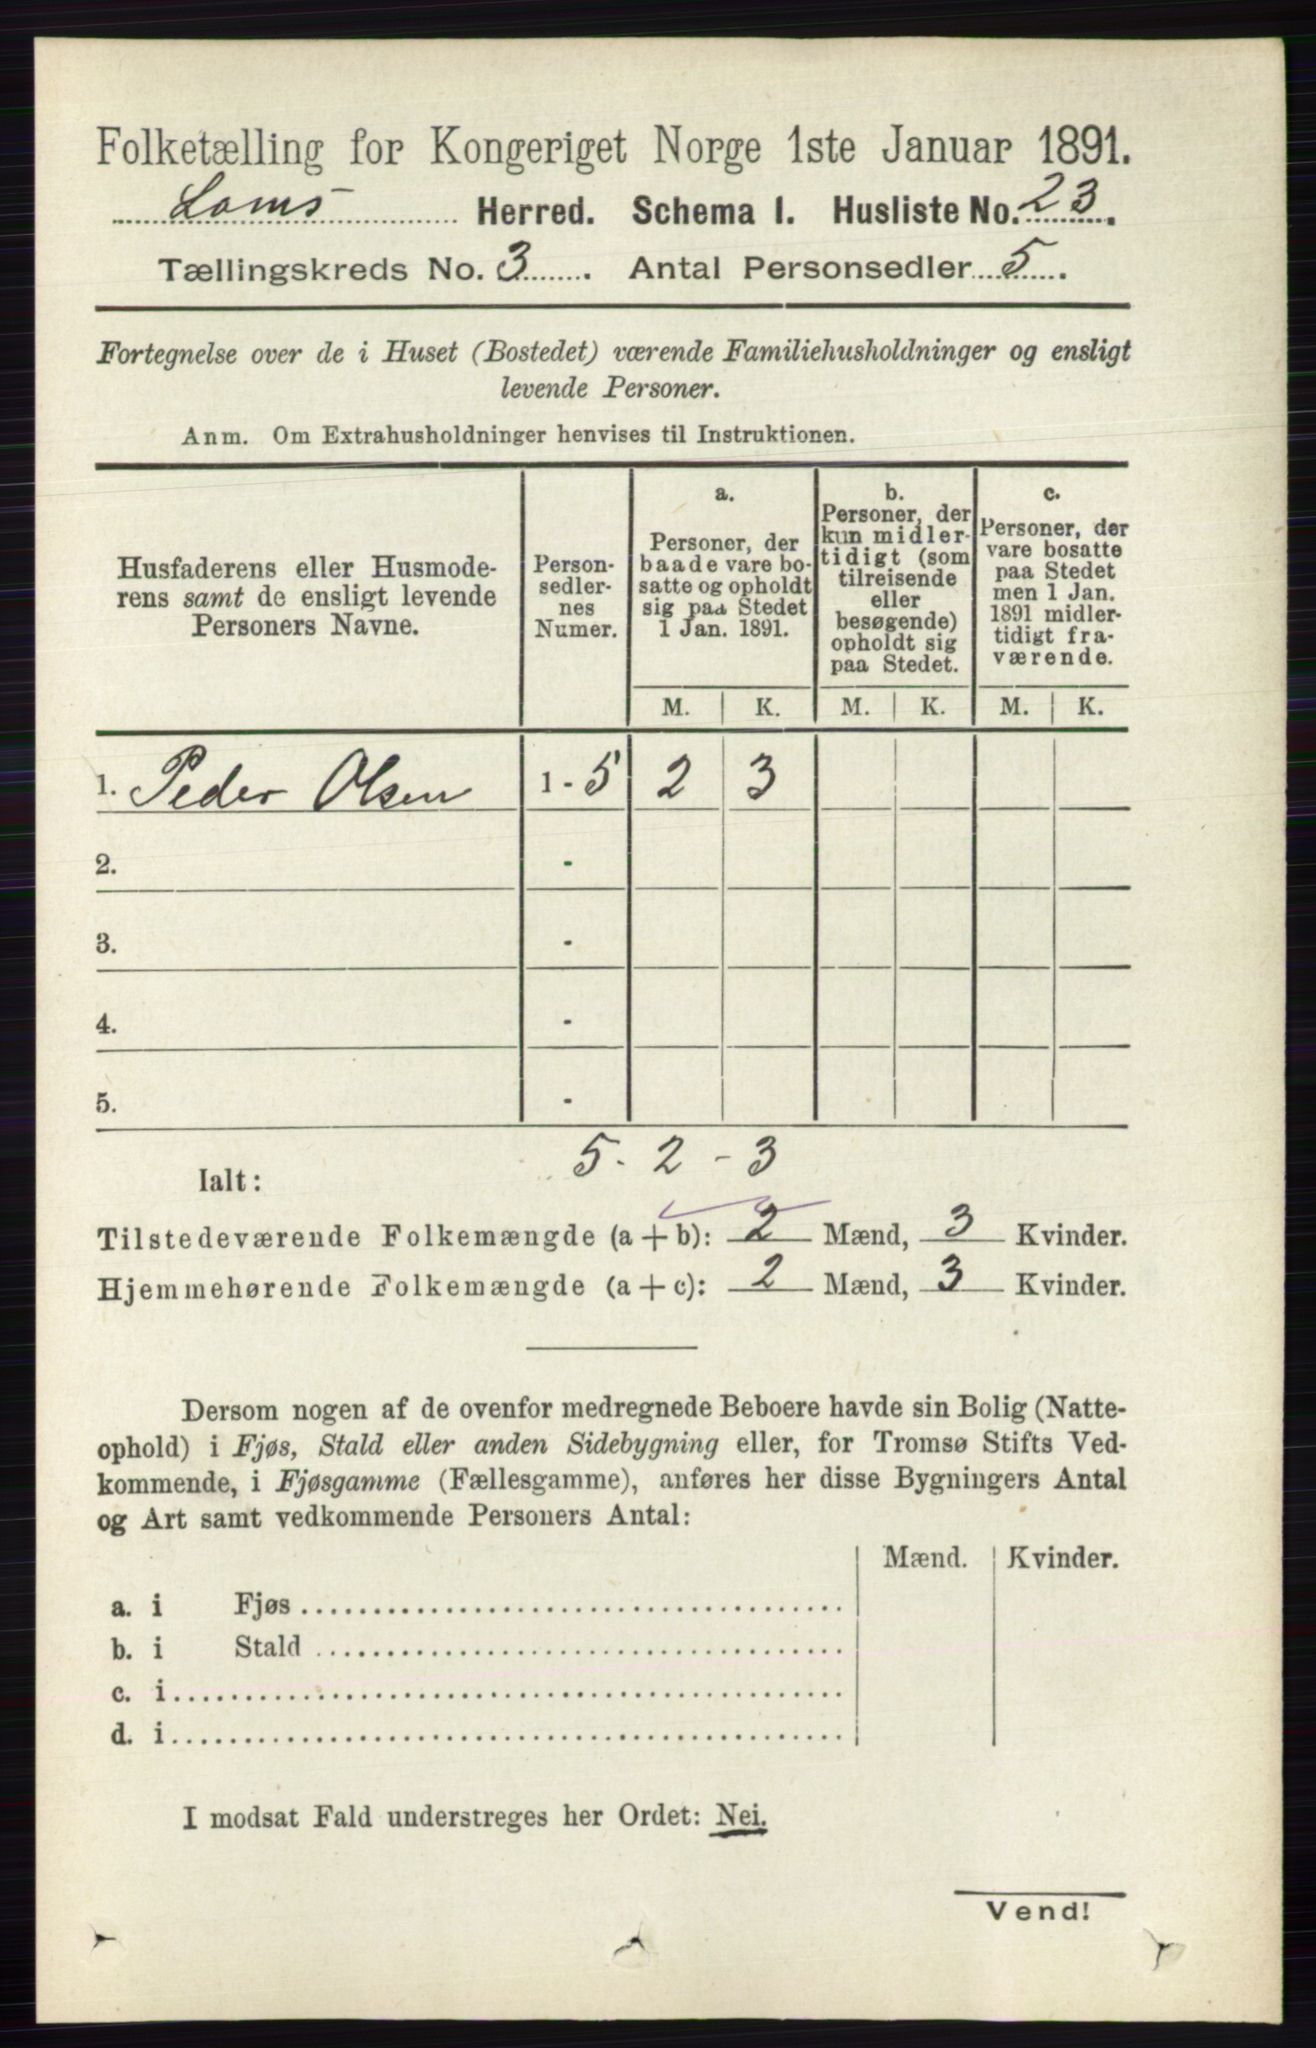 Folketælling for Kongeriget Norge 1ste Januar 1891.
Loms Herred. Schema I. Husliste No. 23.
Tællingskreds No. 3. Antal Personsedler 5.
Fortegnelse over de i Huset (Bostedet) værende Familiehusholdninger og ensligt
levende Personer.
Anm. Om Extrahusholdninger henvises til Instruktionen.
Husfaderens eller Husmode-
rens samt de ensligt levende
Personers Navne.
Person-
sedler-
nes
Numer.
a.
Personer, der
baade vare bo-
satte og opholdt
sig paa Stedet
1 Jan. 1891.
b.
Personer, der
kun midler-
tidigt (som
tilreisende
eller
besøgende)
opholdt sig
paa Stedet.
c.
Personer, der
vare bosatte
paa Stedet
men 1 Jan.
1891 midler-
tidigt fra-
værende.
M. K. M. K. M. K.
1. Peder Olsen 1 - 5 2 3
2. -
3. -
4. -
5. -
5 - 2 - 3
Ialt:
Tilstedeværende Folkemængde (a + b): 2 Mænd, 3 Kvinder.
Hjemmehørende Folkemængde (a + c): 2 Mænd, 3 Kvinder.
Dersom nogen af de ovenfor medregnede Beboere havde sin Bolig (Natte-
ophold) i Fjøs, Stald eller anden Sidebygning eller, for Tromsø Stifts Ved-
kommende, i Fjøsgamme (Fællesgamme), anføres her disse Bygningers Antal
og Art samt vedkommende Personers Antal:
Mænd. Kvinder.
a. i Fjøs
b. i Stald
c. i
d. i
I modsat Fald understreges her Ordet: Nei.
Vend!